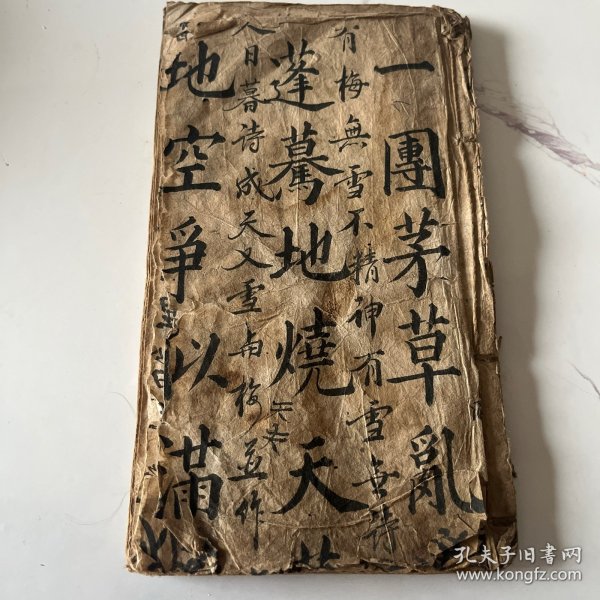 一團茅草亂
有梅無雪不精神有雪無詩
蓬驀地燒天
天冬
人日暮詩成天又雪与梅並作
地空爭似滿
孔夫子旧書网
www.kongfz.com